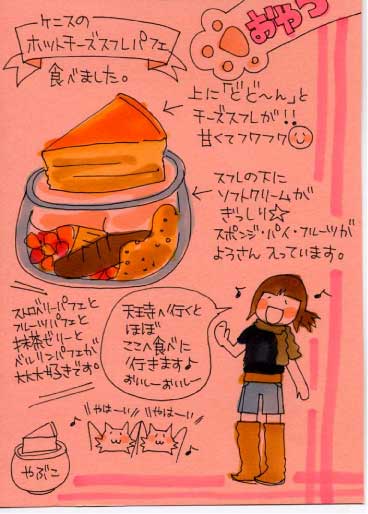 ケニスの
ホットチーズスフレパフェ
食べました。
おやつ
上に「どど〜ん」と
チーズスフレが!!
甘くてフワフワ
スフレの下に
ソフトクリームが
ぎっしり☆
スポンジ・パイ・フルーツが
ようさん入っています。
ストロベリーパフェと
フルーツパフェと
抹茶ゼリーと
ベルリンパフェが
大大大好きです。
天王寺へ行くと
ほぼ
ここへ食べに
行きます♪
おいしーおいしー
やほーい
やほーい
やぶこ